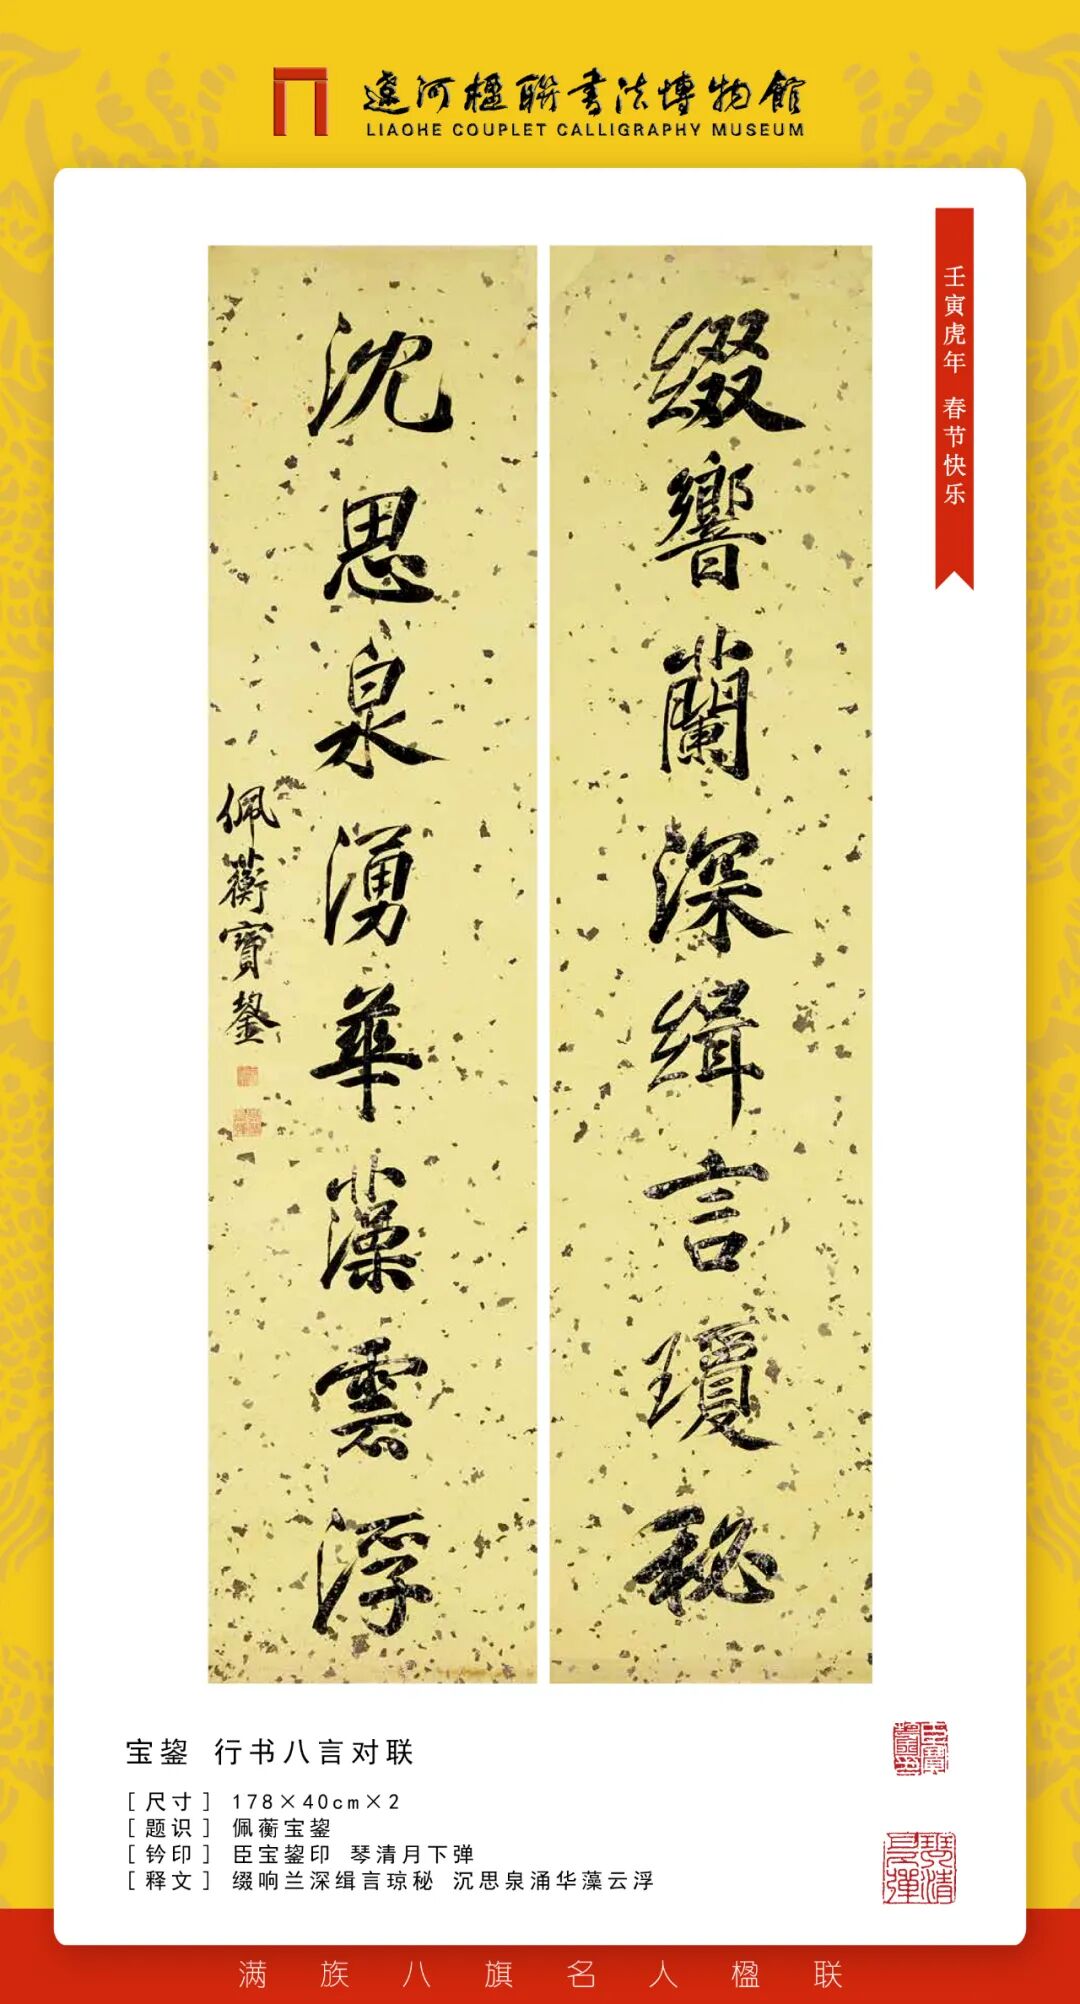 遼河楹聯書法博物館
LIAOHE COUPLET CALLIGRAPHY MUSEUM
壬寅虎年 春节快乐
缀響蘭深緝言瓊秘
沈思泉湧華藻雲浮
佩蘅寶鋆
宝鋆 行书八言对联
[尺寸] 178×40cm×2
[题识] 佩蘅宝鋆
[钤印] 臣宝鋆印 琴清月下弹
[释文] 缀响兰深缉言琼秘 沉思泉涌华藻云浮
满族八旗名人楹联